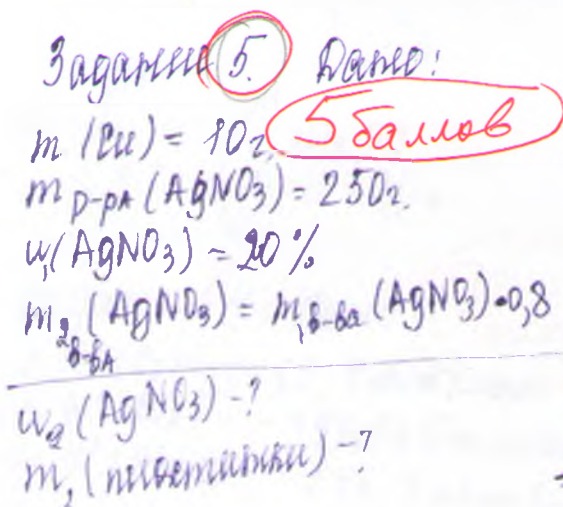 Задание 5. Дано:
m (Cu) = 10г. 5 баллов
m р-ра (AgNO3) = 250г.
w1(AgNO3) = 20%
m2 в-ва (AgNO3) = m1 в-ва (AgNO3)•0,8
w2 (AgNO3) -?
m2 (пластинки) -?